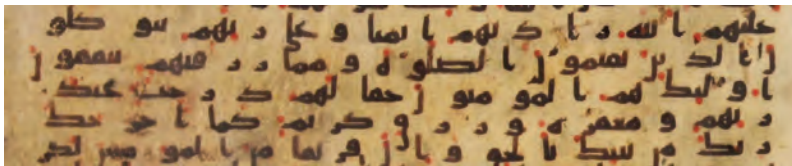 عليهم ايته زادتهم ايمنا وعلى ربهم يتوكلو
ن الذين يقيمون الصلوة ومما رزقنهم ينفقون
اولئك هم المومنون حقا لهم درجت عند
ربهم ومغفرة ورزق كريم كما اخرجك
ربك من بيتك بالحق وان فريقا من المومنين لكر